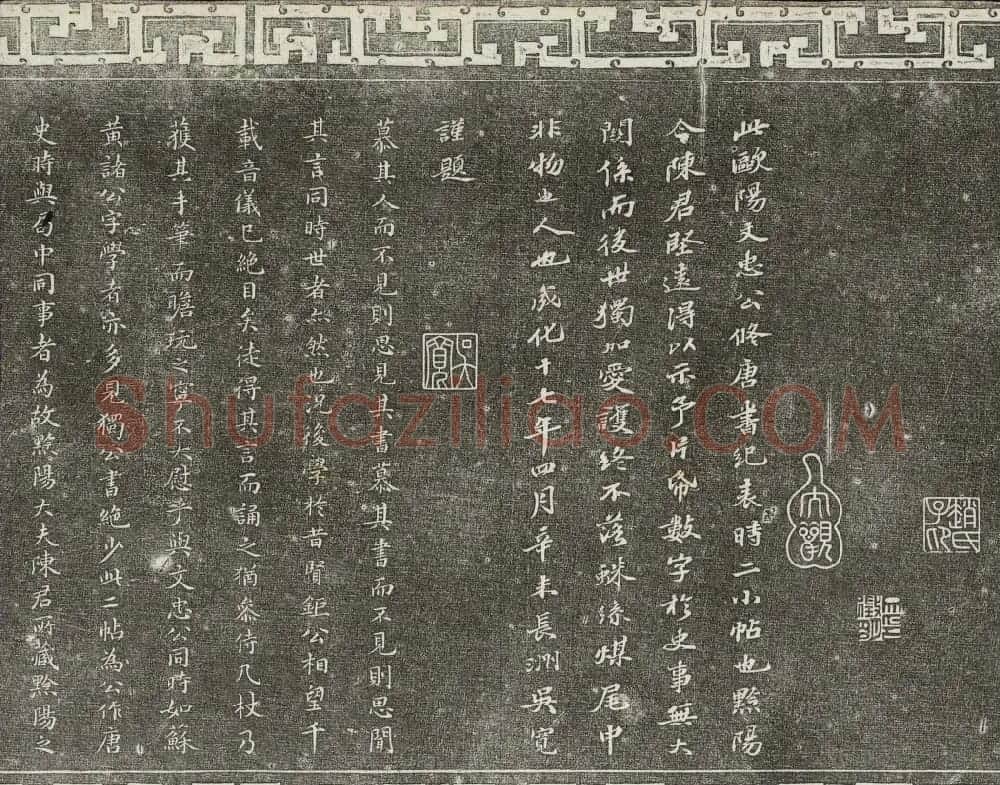 此歐陽文忠公修唐書紀表時二小帖也黟陽
令陳君堅遠得以示予片帋數字於史事無大
關係而後世獨加愛護終不落蛛絲煤尾中
非物在人也成化十七年四月辛未長洲吳寬
謹題
慕其人而不見則思見其書慕其書而不見則思聞
其言同時世者亦然也况後學於昔賢鉅公相望千
載音儀已絕目矣徒得其言而誦之猶參侍几杖乃
獲其手筆而瞻玩之寧不大慰乎與文忠公同時如蘇
黃諸公字學者亦多見獨公書絕少此二帖為公作唐
史時與局中同事者為故黟陽大夫陳君所藏黟陽之
吳寬
大觀
趙氏子昂
Shufaziliao.COM